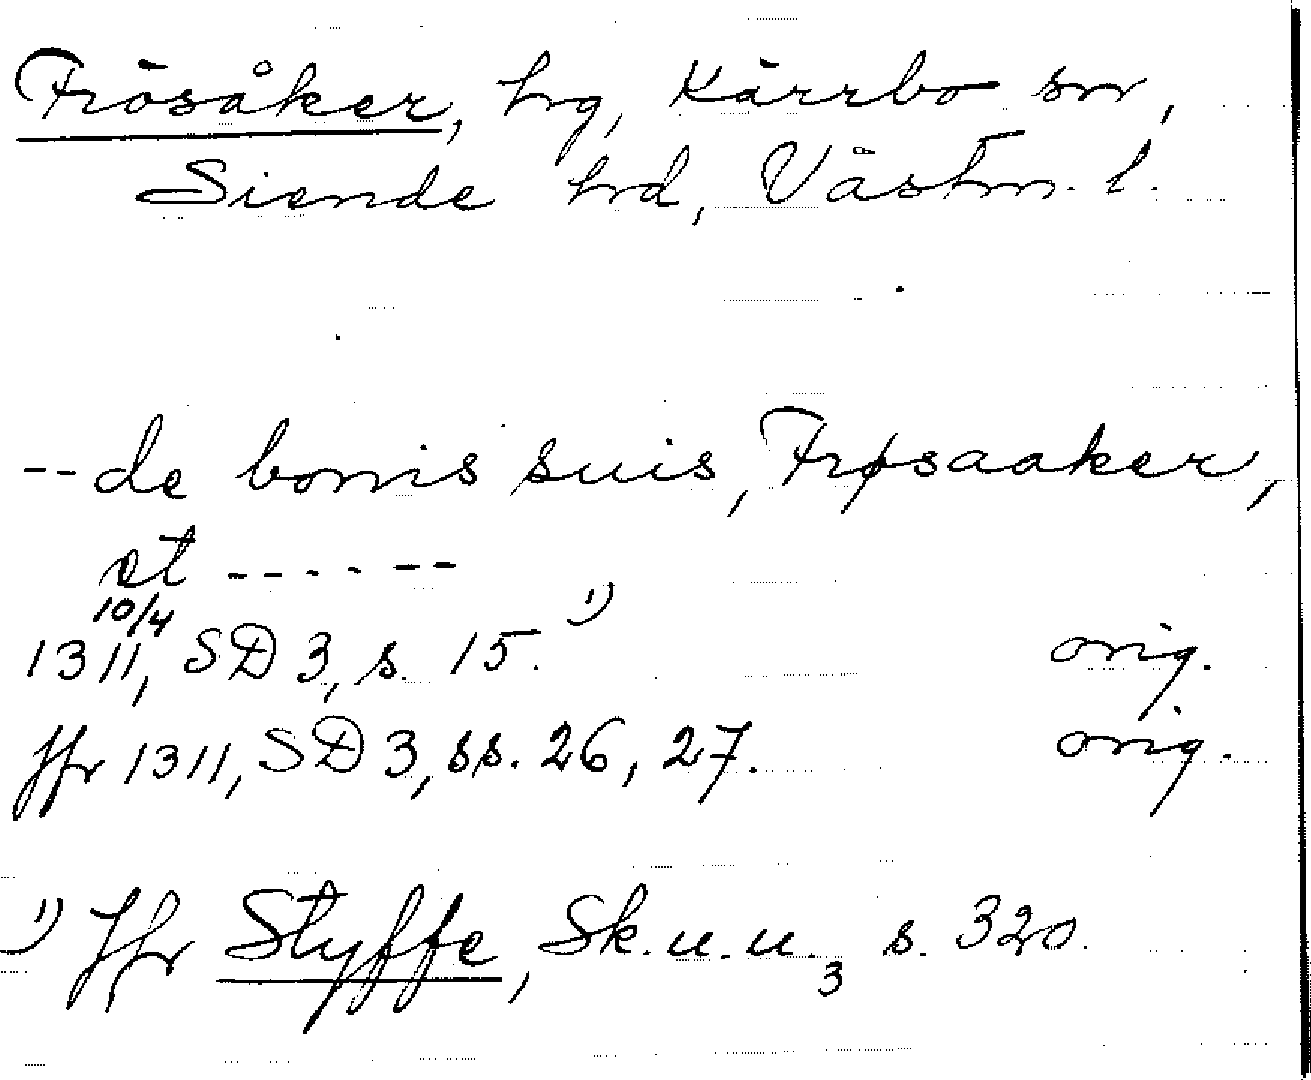 Frösåker, hg, Kärrbo sn,
Siende hd, Västm. l.
-- de bonis suis, Frøsaaker,
et ------
10/4
1311, SD 3, s. 15. 1) orig.
Jfr 1311, SD 3, ss. 26, 27. orig.
1) Jfr Styffe, Sk. u. u. 3 s. 320.